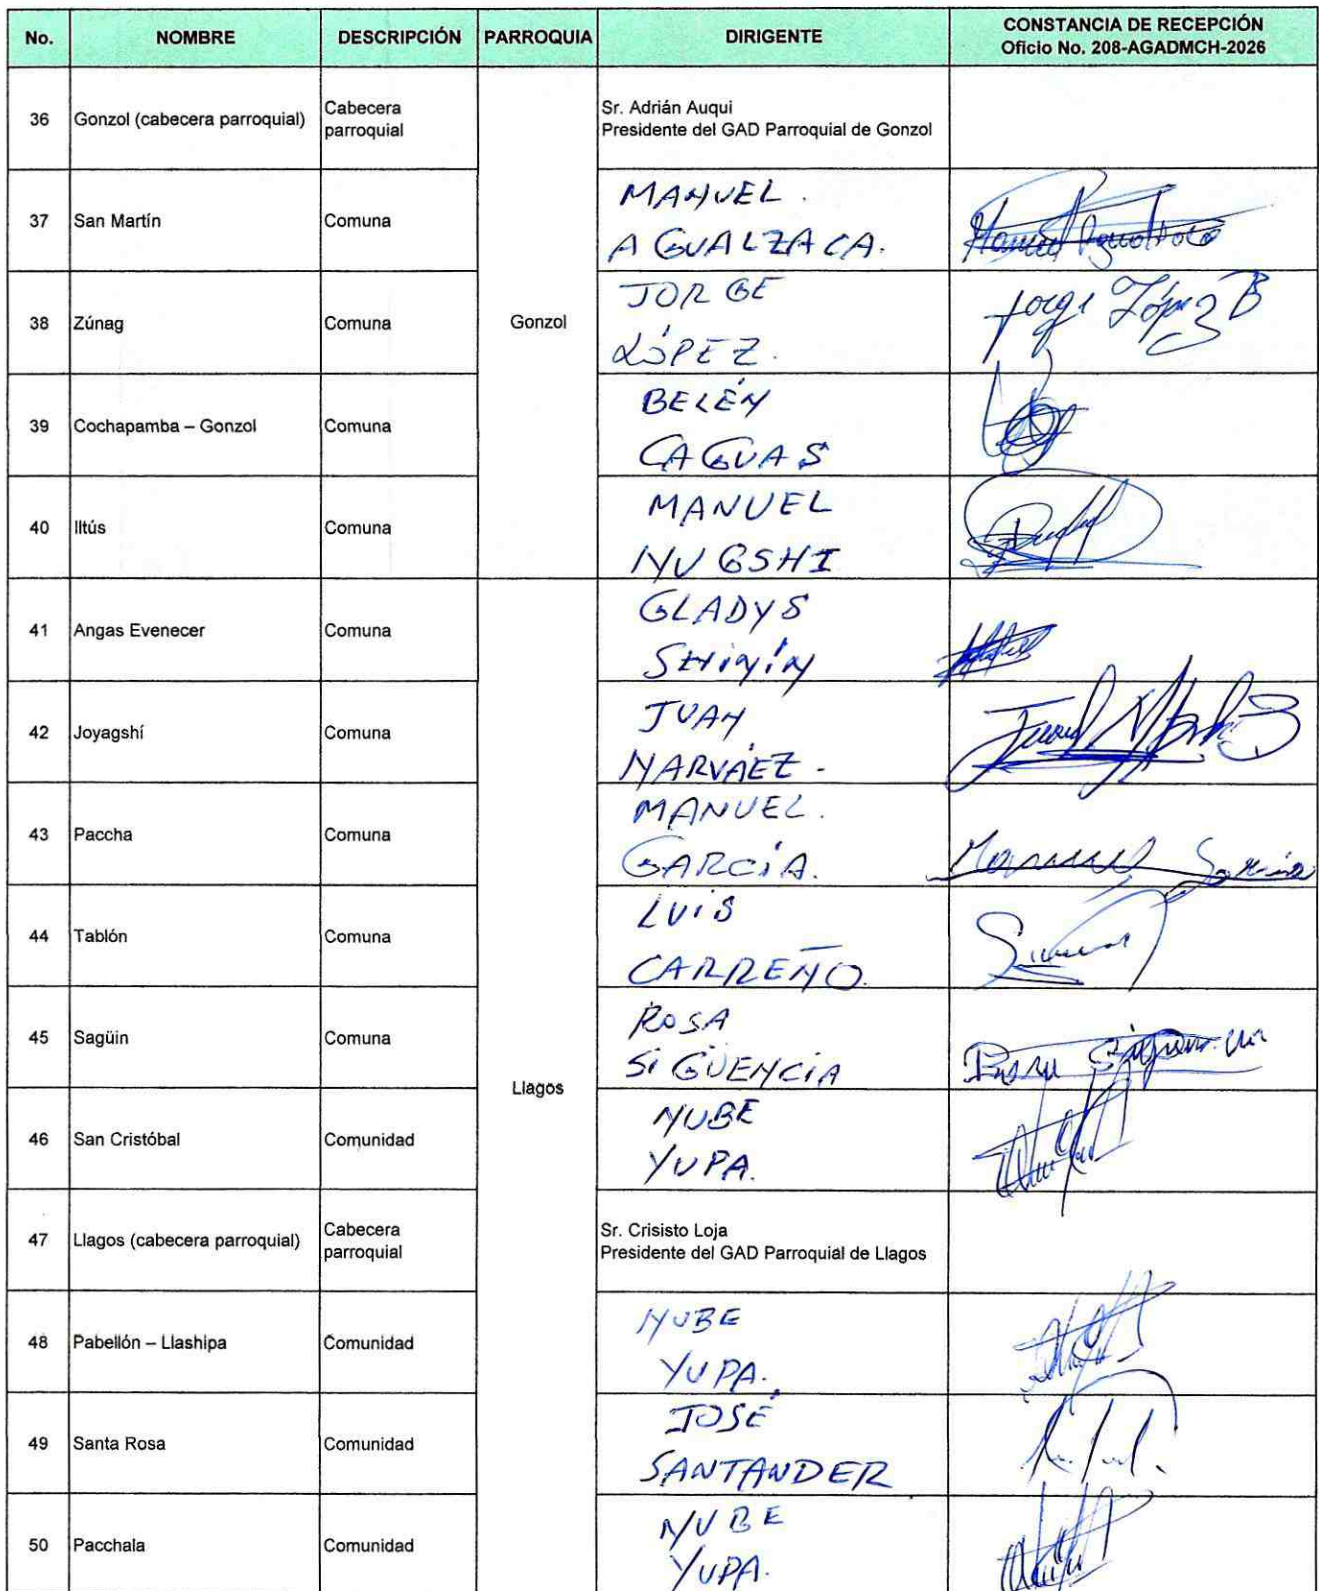 No. NOMBRE DESCRIPCIÓN PARROQUIA DIRIGENTE CONSTANCIA DE RECEPCIÓN
Oficio No. 208-AGADMCH-2026
36 Gonzol (cabecera parroquial) Cabecera parroquial Sr. Adrián Auqui
Presidente del GAD Parroquial de Gonzol
37 San Martín Comuna MANUEL.
AGUALZACA.
38 Zúnag Comuna Gonzol JORGE
LÓPEZ.
Jorge López B
39 Cochapamba – Gonzol Comuna BELÉN
CAGUAS
40 Iltús Comuna MANUEL
NUGSHI
41 Angas Evenecer Comuna GLADYS
SHIÑIN
42 Joyagshí Comuna JUAN
NARVÁEZ.
43 Paccha Comuna MANUEL.
GARCÍA.
Manuel García
44 Tablón Comuna LUIS
CARREÑO.
45 Sagüin Comuna ROSA
SIGÜENCIA
Llagos
46 San Cristóbal Comunidad NUBE
YUPA.
47 Llagos (cabecera parroquial) Cabecera parroquial Sr. Crisisto Loja
Presidente del GAD Parroquial de Llagos
48 Pabellón – Llashipa Comunidad NUBE
YUPA.
49 Santa Rosa Comunidad JOSÉ
SANTANDER
50 Pacchala Comunidad NUBE
YUPA.